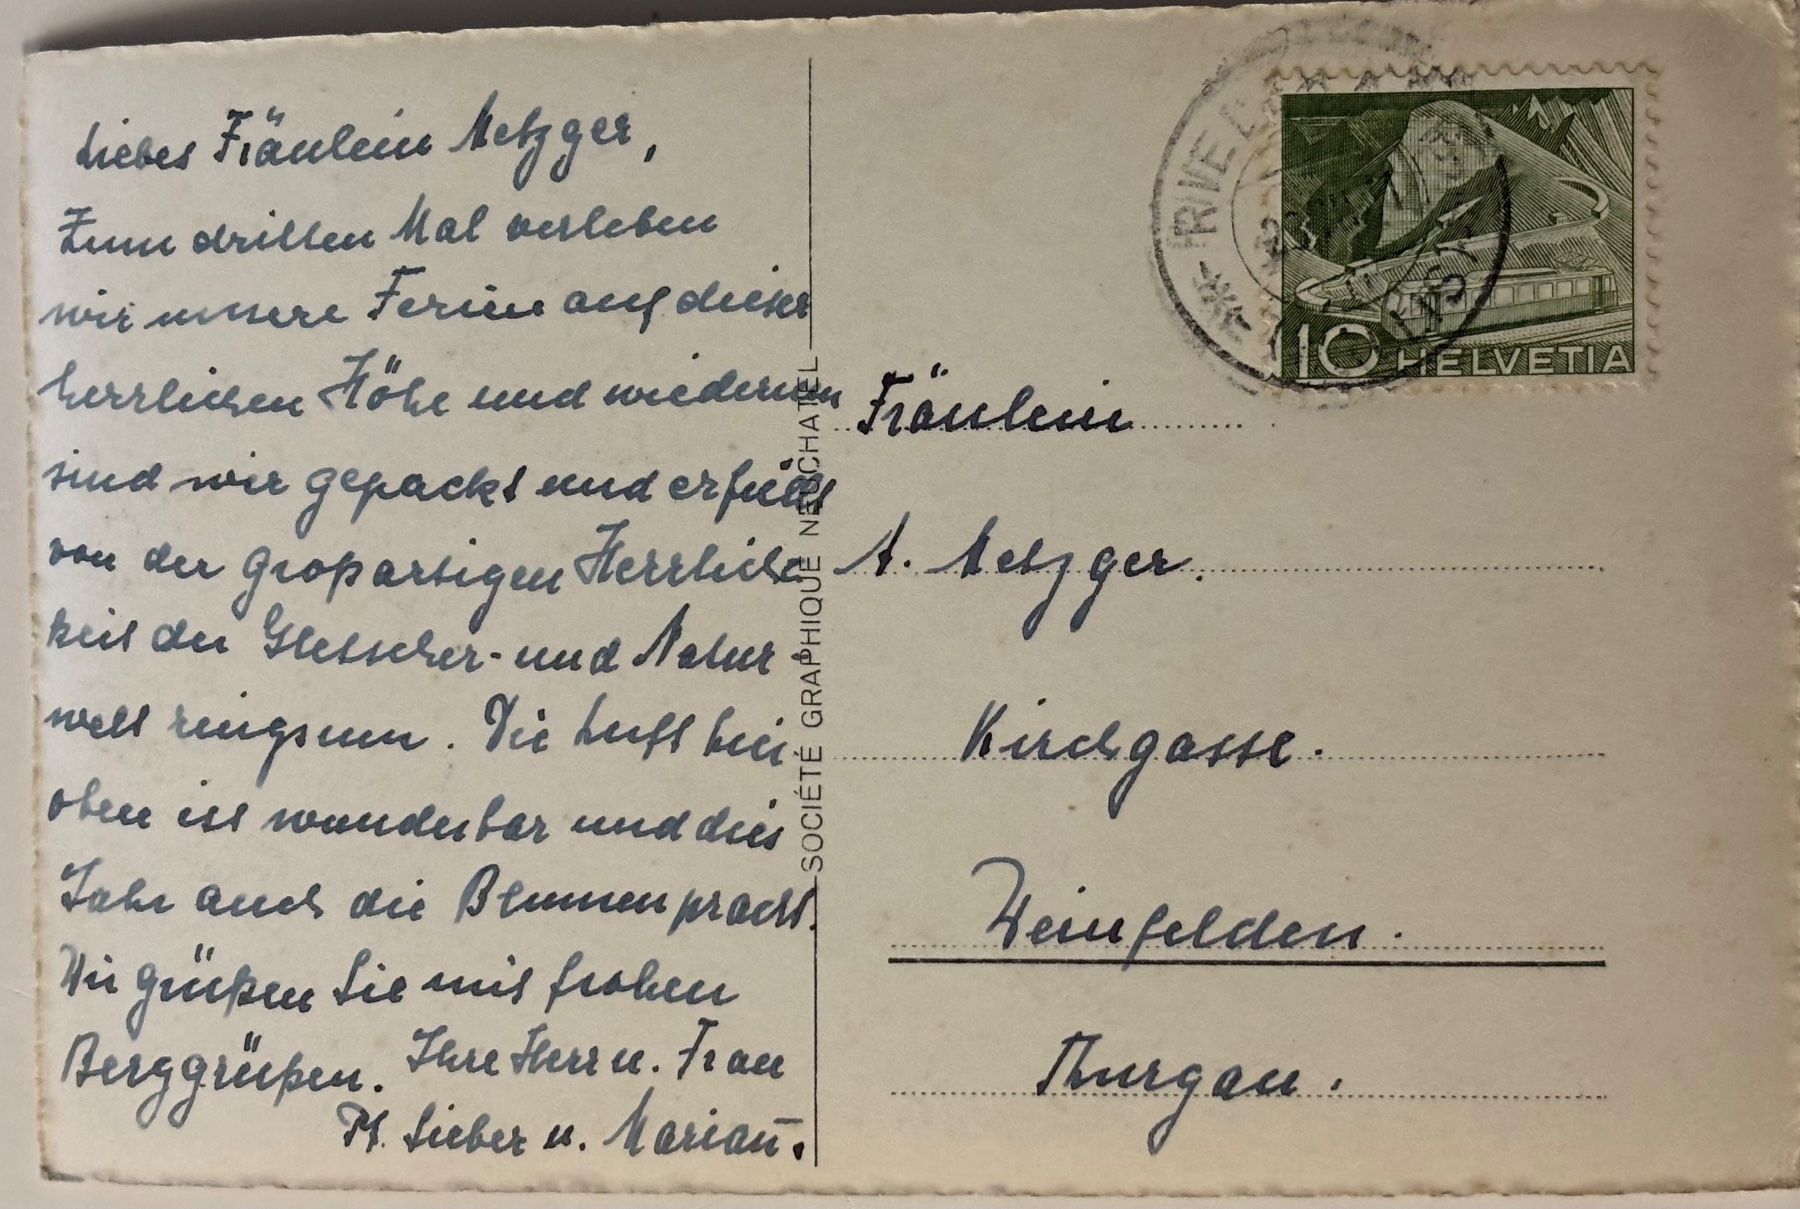 Liebes Fräulein Metzger,
Zum dritten Mal verleben
wir unsere Ferien auf dieser
herrlichen Höhe und wiederum
sind wir gepackt und erfüllt
von der großartigen Herrlich-
keit der Gletscher- und Natur
welt ringsum. Die Luft hier
oben ist wunderbar und dies
Jahr auch die Blumenpracht.
Wir grüßen Sie mit frohen
Berggrüßen. Ihre Herr u. Frau
Pf. Sieber u. Mariañ.
SOCIÉTÉ GRAPHIQUE NEUCHATEL
10 HELVETIA
Fräulein
A. Metzger.
Kirchgasse.
Weinfelden.
Thurgau.